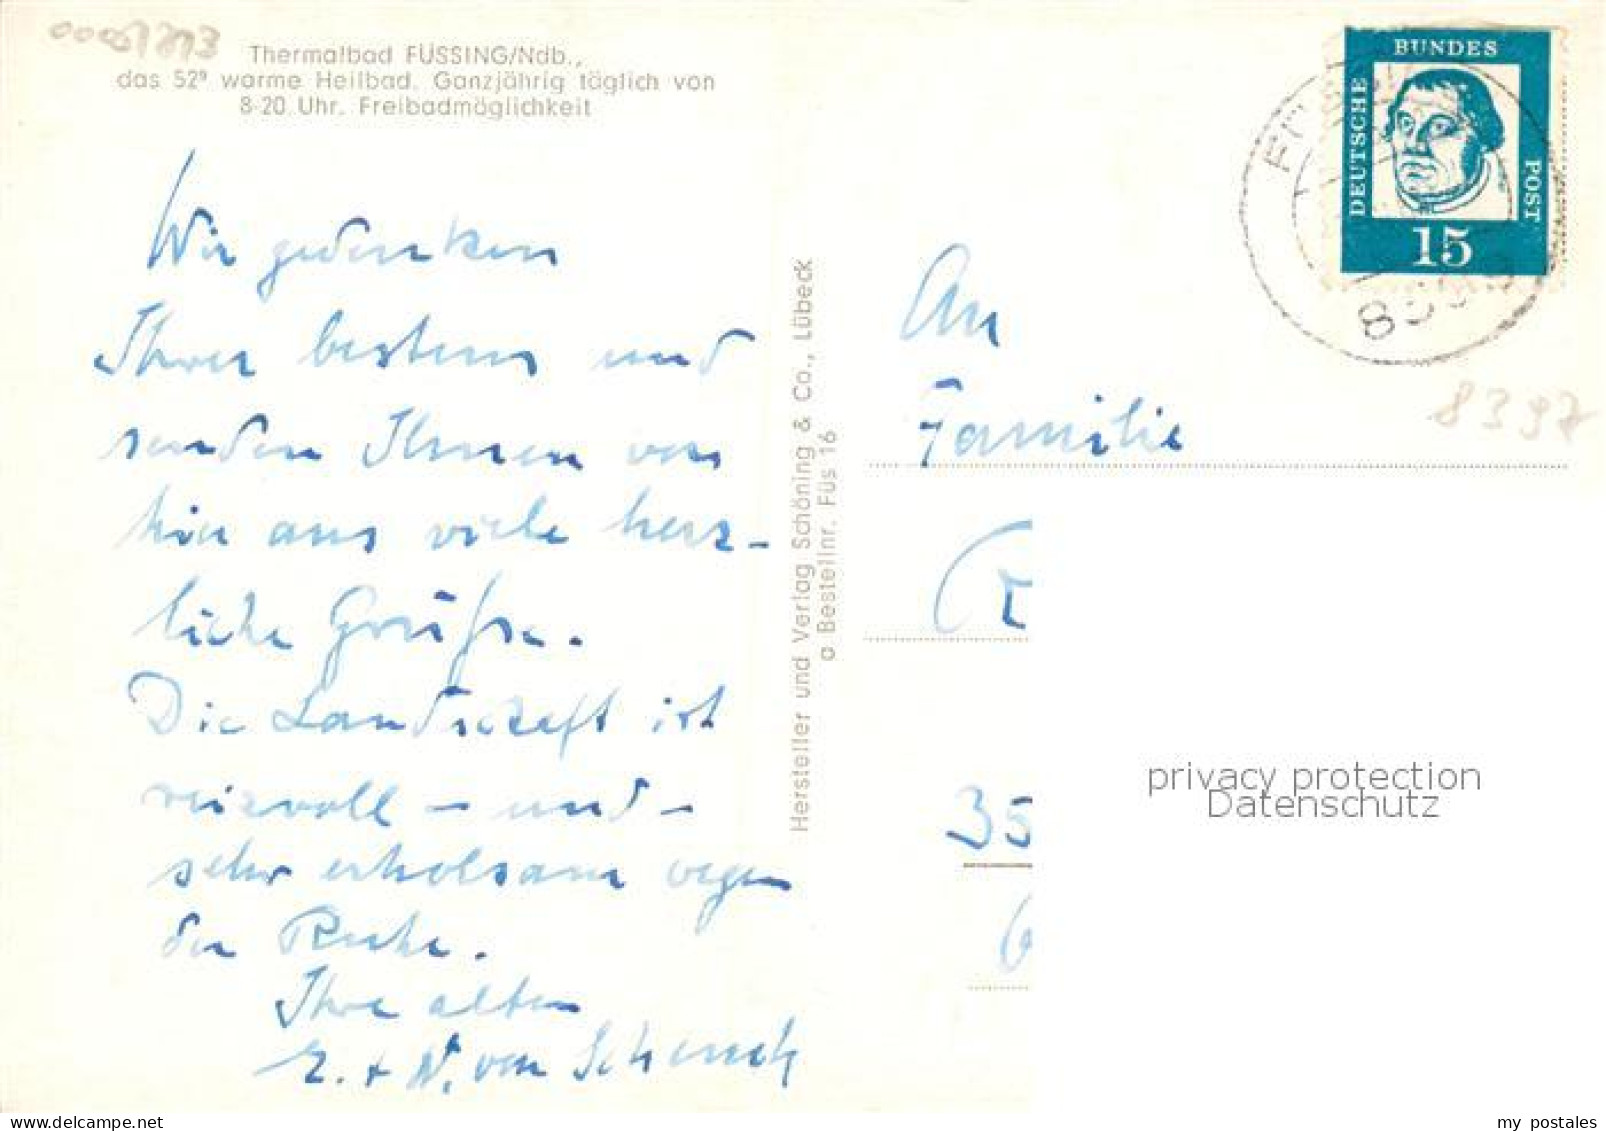 00081313
Thermalbad FÜSSING/Ndb.,
das 52° warme Heilbad. Ganzjährig täglich von
8-20 Uhr. Freibadmöglichkeit
Wir gedenken
Ihrer bestens und
senden Ihnen von
hier aus viele herz-
liche Grüße.
Die Landschaft ist
reizvoll - und -
sehr erholsam wegen
der Ruhe.
Ihre alten
E. + W. von Schenck
Hersteller und Verlag Schöning & Co., Lübeck
a Bestellnr. Füs 16
DEUTSCHE
BUNDES
POST
15
An
Familie
35
8397
privacy protection
Datenschutz
my postales